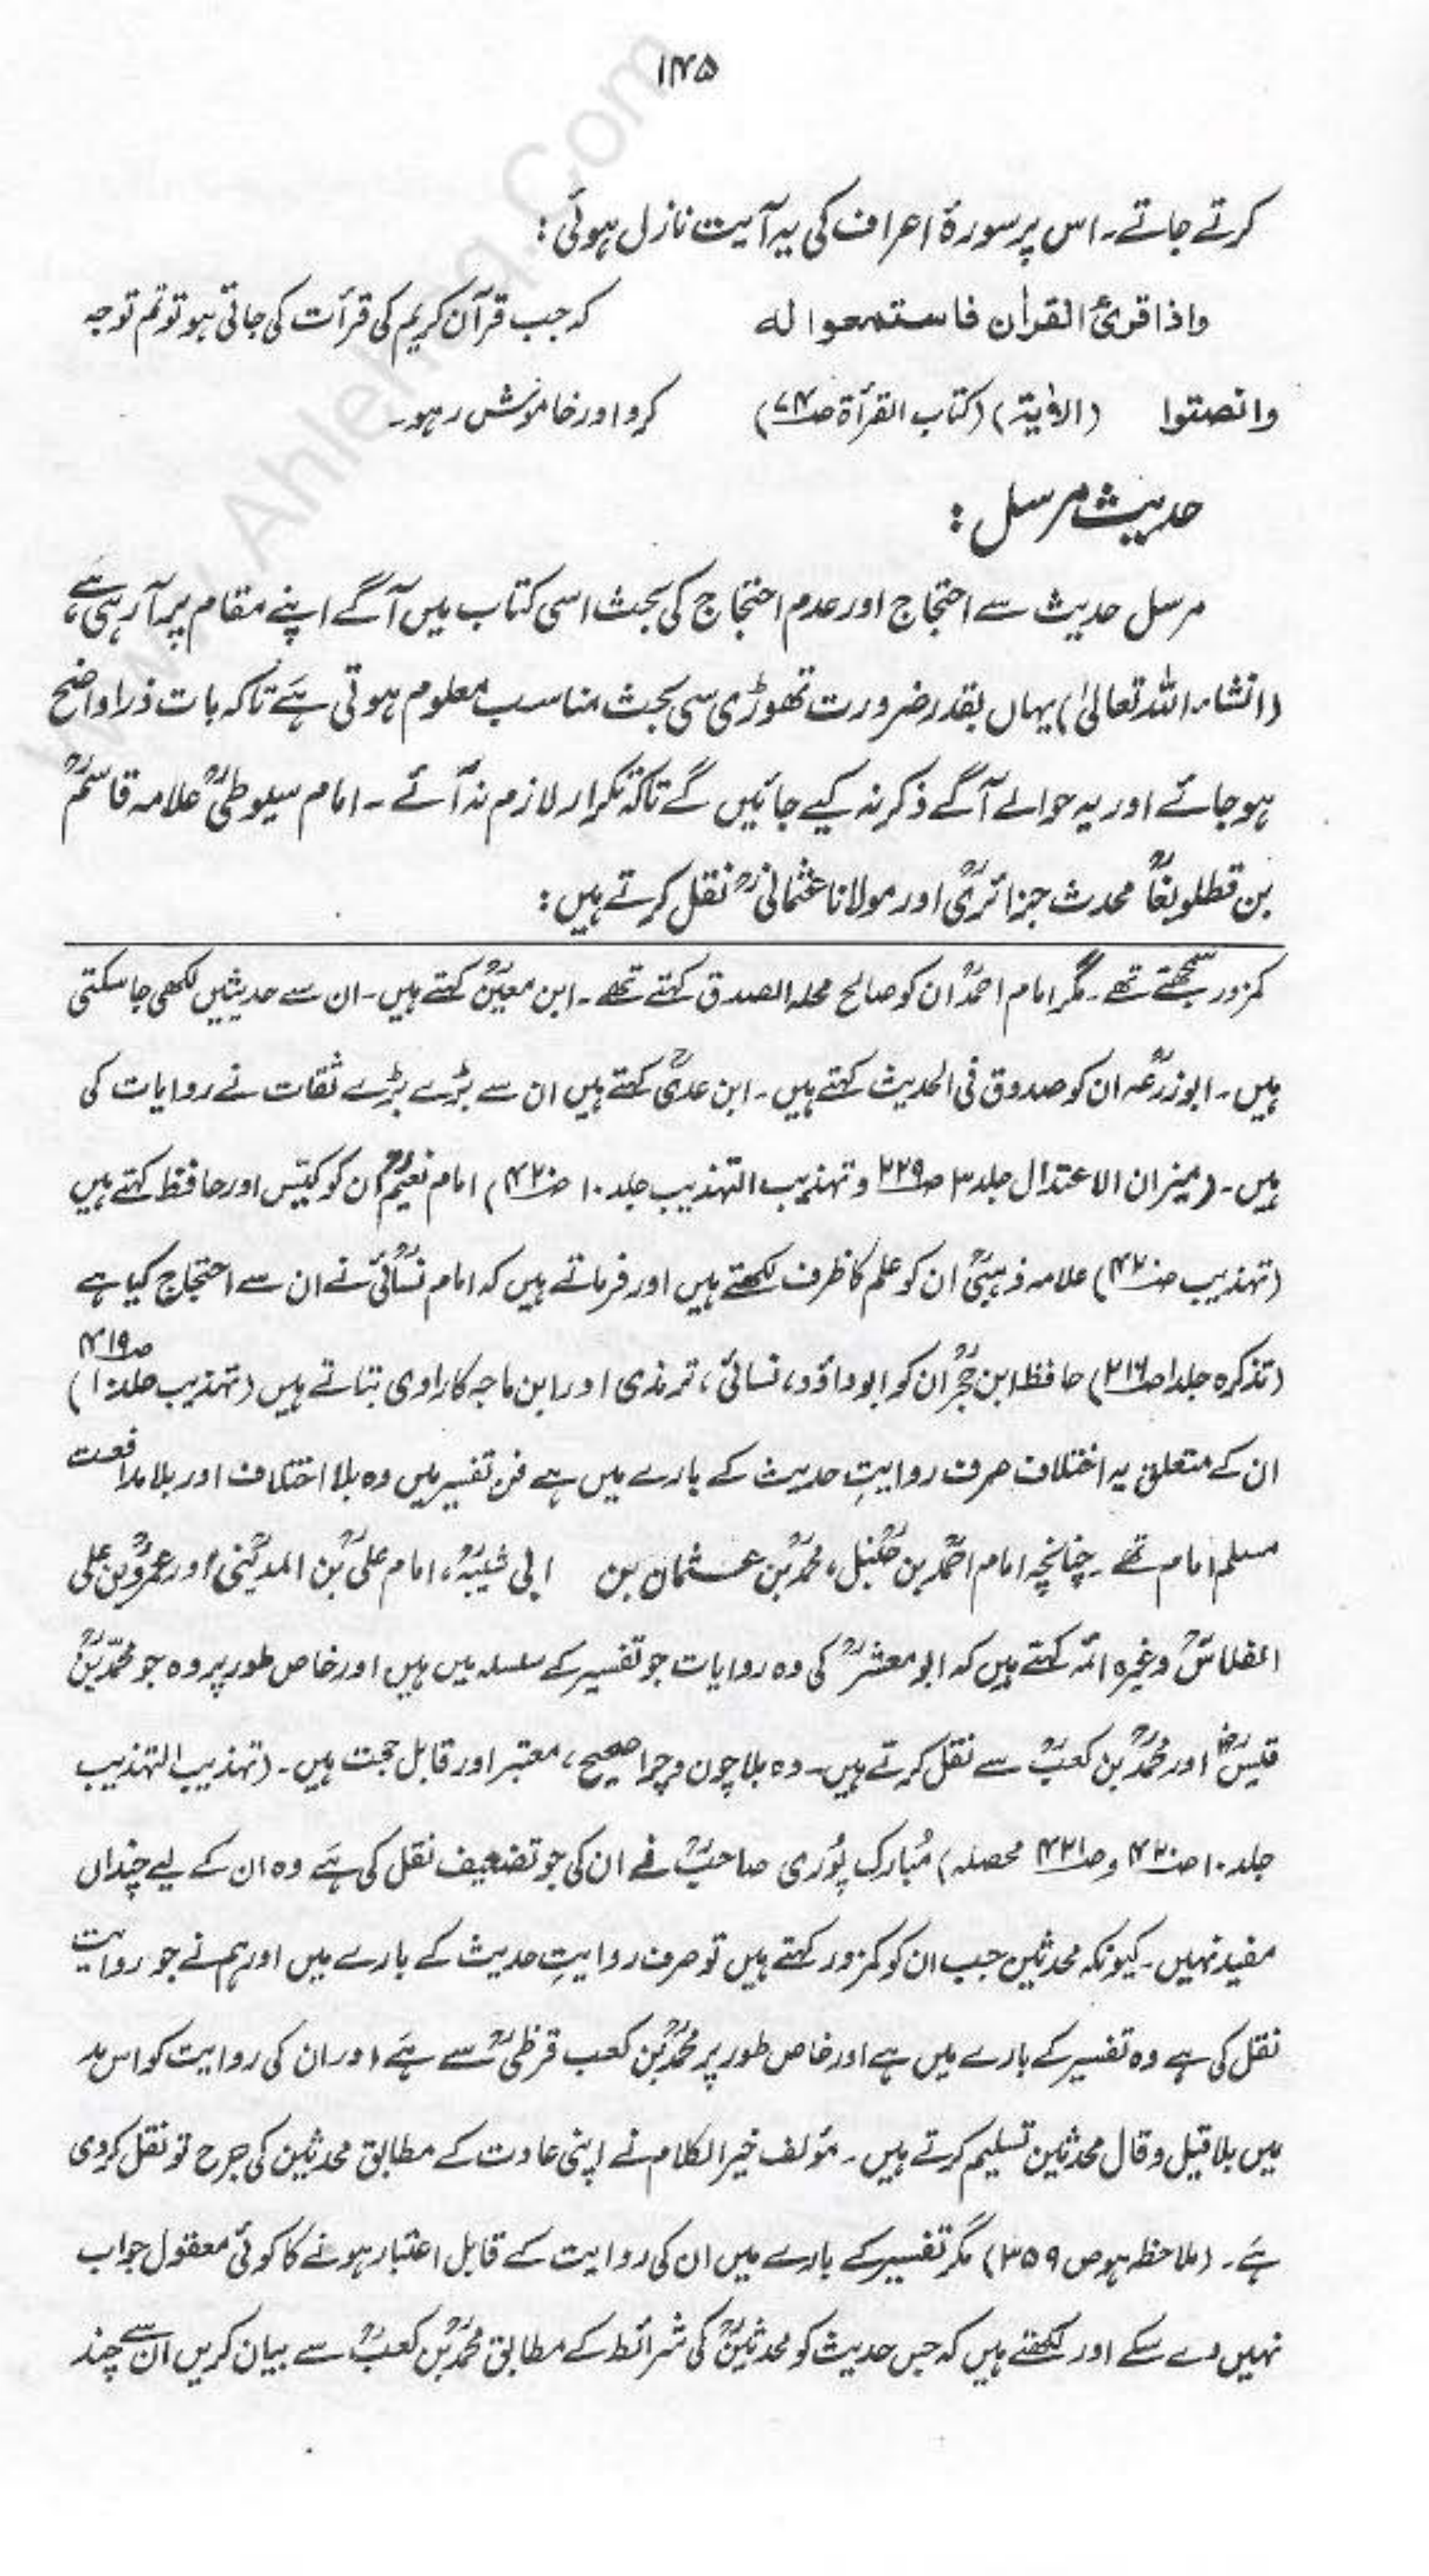 ۱۴۵
کرتے جاتے۔ اس پر سورۂ اعراف کی یہ آیت نازل ہوئی:
واذا قرئ القراٰن فاستمعوا لہ کہ جب قرآن کریم کی قرأت کی جاتی ہو تو تم توجہ
وانصتوا (الاٰیۃ) (کتاب القرأۃ ص۷۴) کرو اور خاموش رہو۔
حدیث مرسل:
مرسل حدیث سے احتجاج اور عدم احتجاج کی بحث اسی کتاب میں آگے اپنے مقام پر آرہی ہے،
(انشاء اللہ تعالیٰ) یہاں بقدر ضرورت تھوڑی سی بحث مناسب معلوم ہوتی ہے تاکہ بات ذرا واضح
ہوجائے اور یہ حوالے آگے ذکر نہ کیے جائیں گے تاکہ تکرار لازم نہ آئے۔ امام سیوطیؒ علامہ قاسمؒ
بن قطلوبغاؒ محدث جزائریؒ اور مولانا عثمانیؒ نقل کرتے ہیں:
کمزور سمجھتے تھے۔ مگر امام احمدؒ ان کو صالح محلہ الصدق کہتے تھے۔ ابن معینؒ کہتے ہیں۔ ان سے حدیثیں لکھی جاسکتی
ہیں۔ ابوزرعہؒ ان کو صدوق فی الحدیث کہتے ہیں۔ ابن عدیؒ کہتے ہیں ان سے بڑے بڑے ثقات نے روایات کی
ہیں۔ (میزان الاعتدال جلد ۳ ص۲۲۹ و تہذیب التہذیب جلد ۱۰ ص۴۲۰) امام نعیمؒ ان کو کیّس اور حافظ کہتے ہیں
(تہذیب ص۴۲۰) علامہ ذہبیؒ ان کو علم کا ظرف لکھتے ہیں اور فرماتے ہیں کہ امام نسائیؒ نے ان سے احتجاج کیا ہے
(تذکرہ جلد۱ ص۲۱۶) حافظ ابن حجرؒ ان کو ابوداؤد، نسائی، ترمذی اور ابن ماجہ کا راوی بتاتے ہیں (تہذیب جلد۱۰ ص۴۱۹)
ان کے متعلق یہ اختلاف صرف روایتِ حدیث کے بارے میں ہے فن تفسیر میں وہ بلا اختلاف اور بلا مدافعت
مسلم امام تھے۔ چنانچہ امام احمدؒ بن حنبلؒ، محمدؒ بن عثمان بن ابی شیبہؒ، امام علیؒ بن المدینیؒ اور عمروؒ بن علی
الفلاسؒ وغیرہ ائمہ کہتے ہیں کہ ابو معشرؒ کی وہ روایات جو تفسیر کے سلسلہ میں ہیں اور خاص طور پر وہ جو محمدؒ بن
قیسؒ اور محمدؒ بن کعبؒ سے نقل کرتے ہیں۔ وہ بلا چون وچرا صحیح، معتبر اور قابل حجت ہیں۔ (تہذیب التہذیب
جلد ۱۰ ص۴۲۰ و ص۴۲۱ محصلہ) مُبارک پُوری صاحبؒ نے ان کی جو تضعیف نقل کی ہے وہ ان کے لیے چنداں
مفید نہیں۔ کیونکہ محدثین جب ان کو کمزور کہتے ہیں تو صرف روایتِ حدیث کے بارے میں اور ہم نے جو روایت
نقل کی ہے وہ تفسیر کے بارے میں ہے اور خاص طور پر محمدؒ بن کعب قرظیؒ سے ہے اور ان کی روایت کو اس مد
میں بلا قیل وقال محدثین تسلیم کرتے ہیں۔ مؤلف خیر الکلام نے اپنی عادت کے مطابق محدثین کی جرح تو نقل کردی
ہے۔ (ملاحظہ ہو ص ۳۵۹) مگر تفسیر کے بارے میں ان کی روایت کے قابل اعتبار ہونے کا کوئی معقول جواب
نہیں دے سکے اور لکھتے ہیں کہ جس حدیث کو محدثینؒ کی شرائط کے مطابق محمدؒ بن کعبؒ سے بیان کریں ان سے چند
www.Ahlehaq.Com